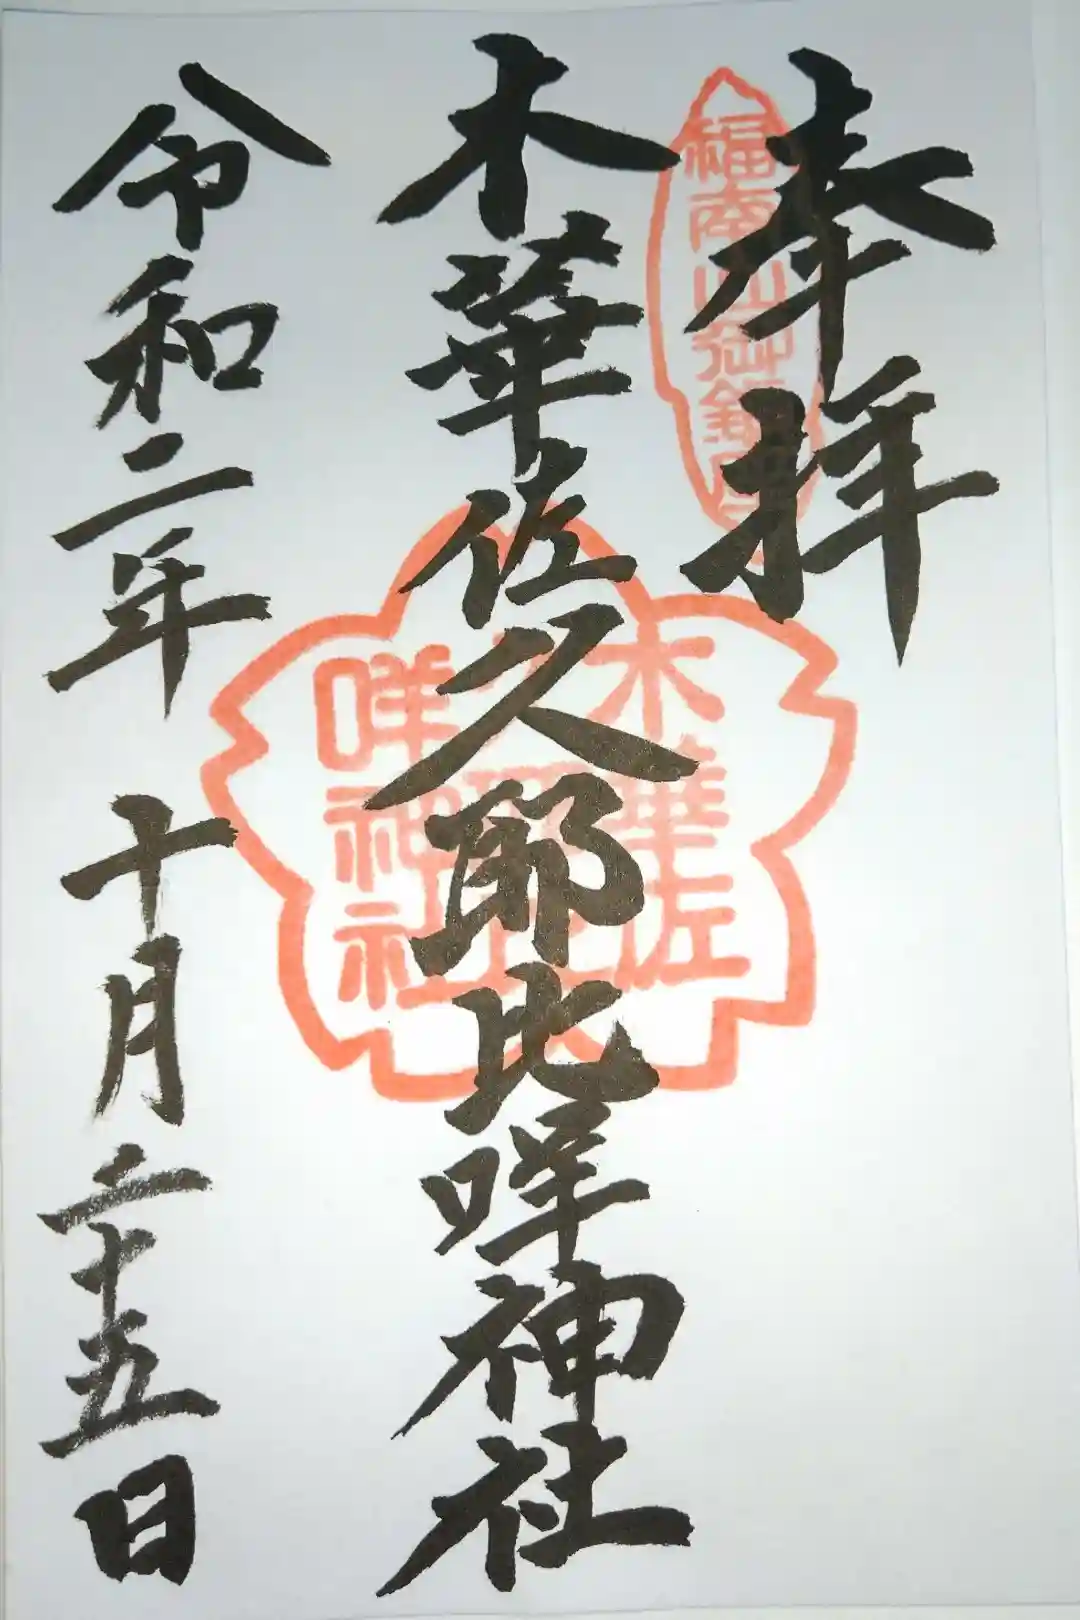 奉拝
福南山御鎮座
木華佐久耶比咩神社
木華佐
久耶比
咩神社
令和二年 十月二十五日